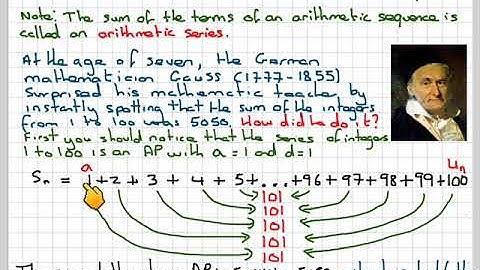 Note: The sum of the terms of an arithmetic sequence is
called an arithmetic series.
At the age of seven, the German
mathematician Gauss (1777-1855)
Surprised his mathematic teacher by
instantly spotting that the sum of the integers
from 1 to 100 was 5050. How did he do it?
First you should notice that the series of integers
1 to 100 is an AP with a = 1 and d = 1
a Un
Sn = 1 + 2 + 3 + 4 + 5 + ... + 96 + 97 + 98 + 99 + 100
101
101
101
101
101